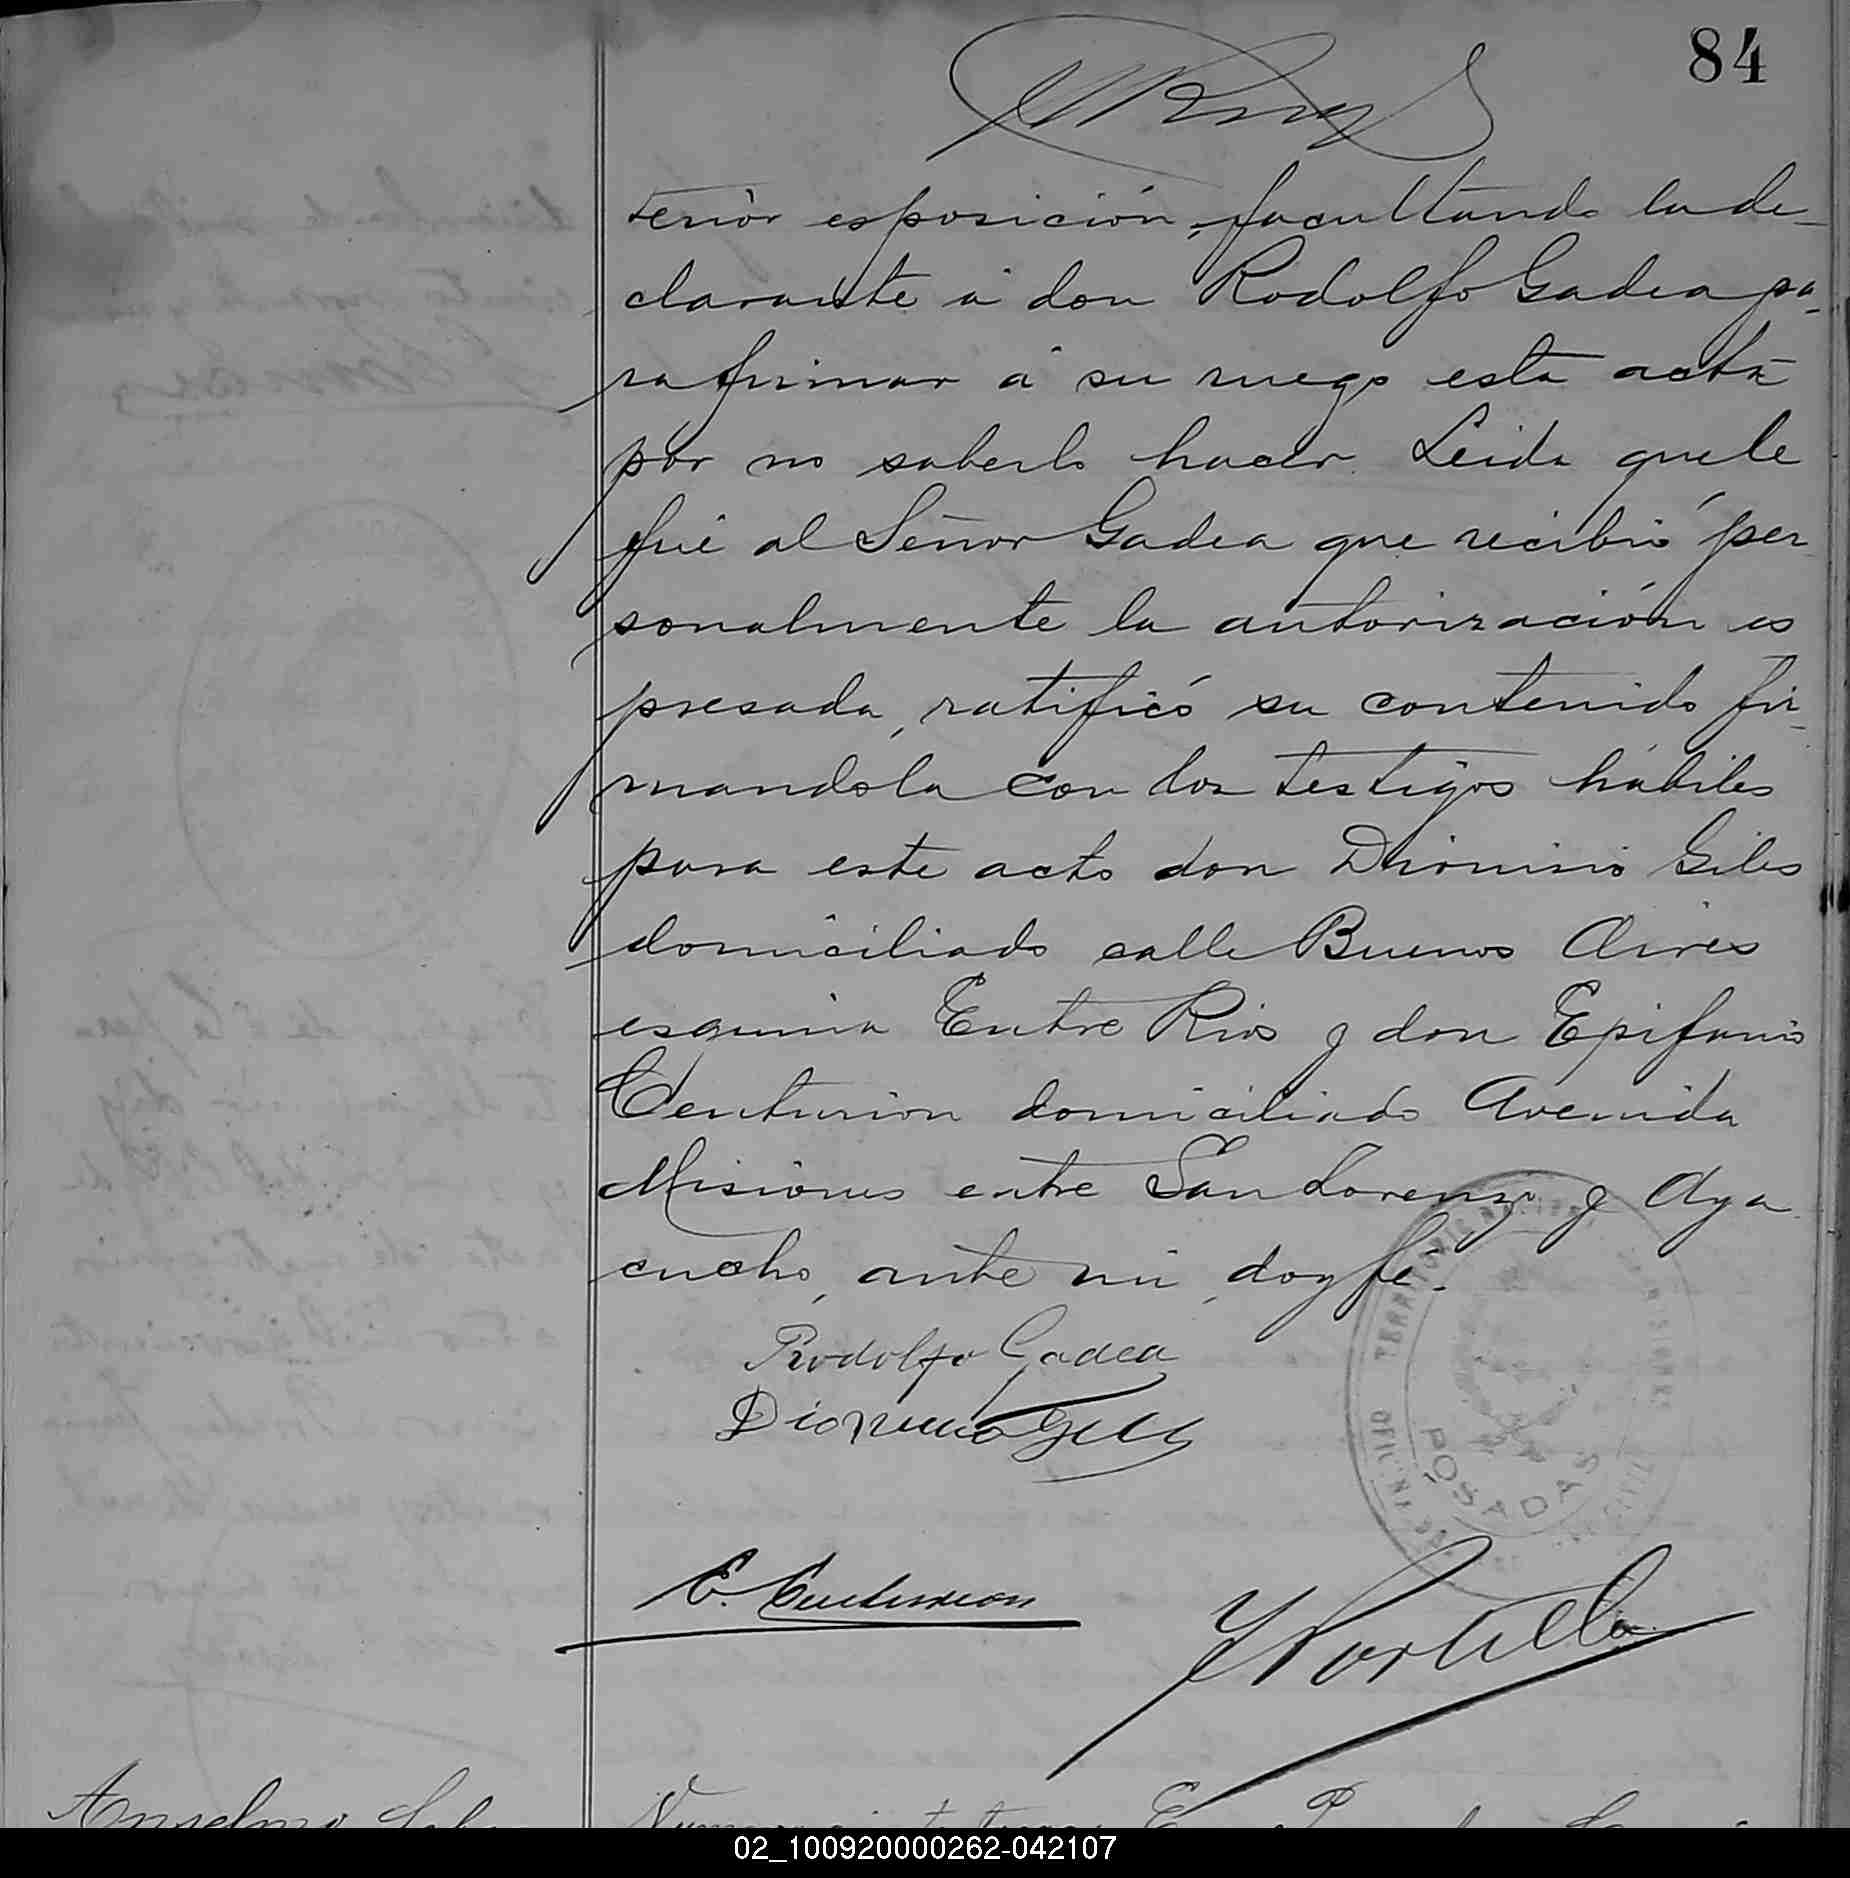 84
terior esposición, facultando la de-
clarante á don Rodolfo Gadea pa-
ra firmar á su ruego esta acta
por no saberlo hacer. Leida que le
fué al Señor Gadea que recibió per
sonalmente la autorización es
presada, ratificó su contenido fir-
mandola con los testigos hábiles
para este acto don Dionisio Giles
domiciliado calle Buenos Aires
esquina Entre Rios y don Epifanio
Centurion domiciliado Avenida
Misiones entre San Lorenzo y Aya
cucho, ante mi, doy fé.
Rodolfo Gadea
Dionisio Gill
POSADAS
E. Centurion
Anselmo
02_100920000262-042107